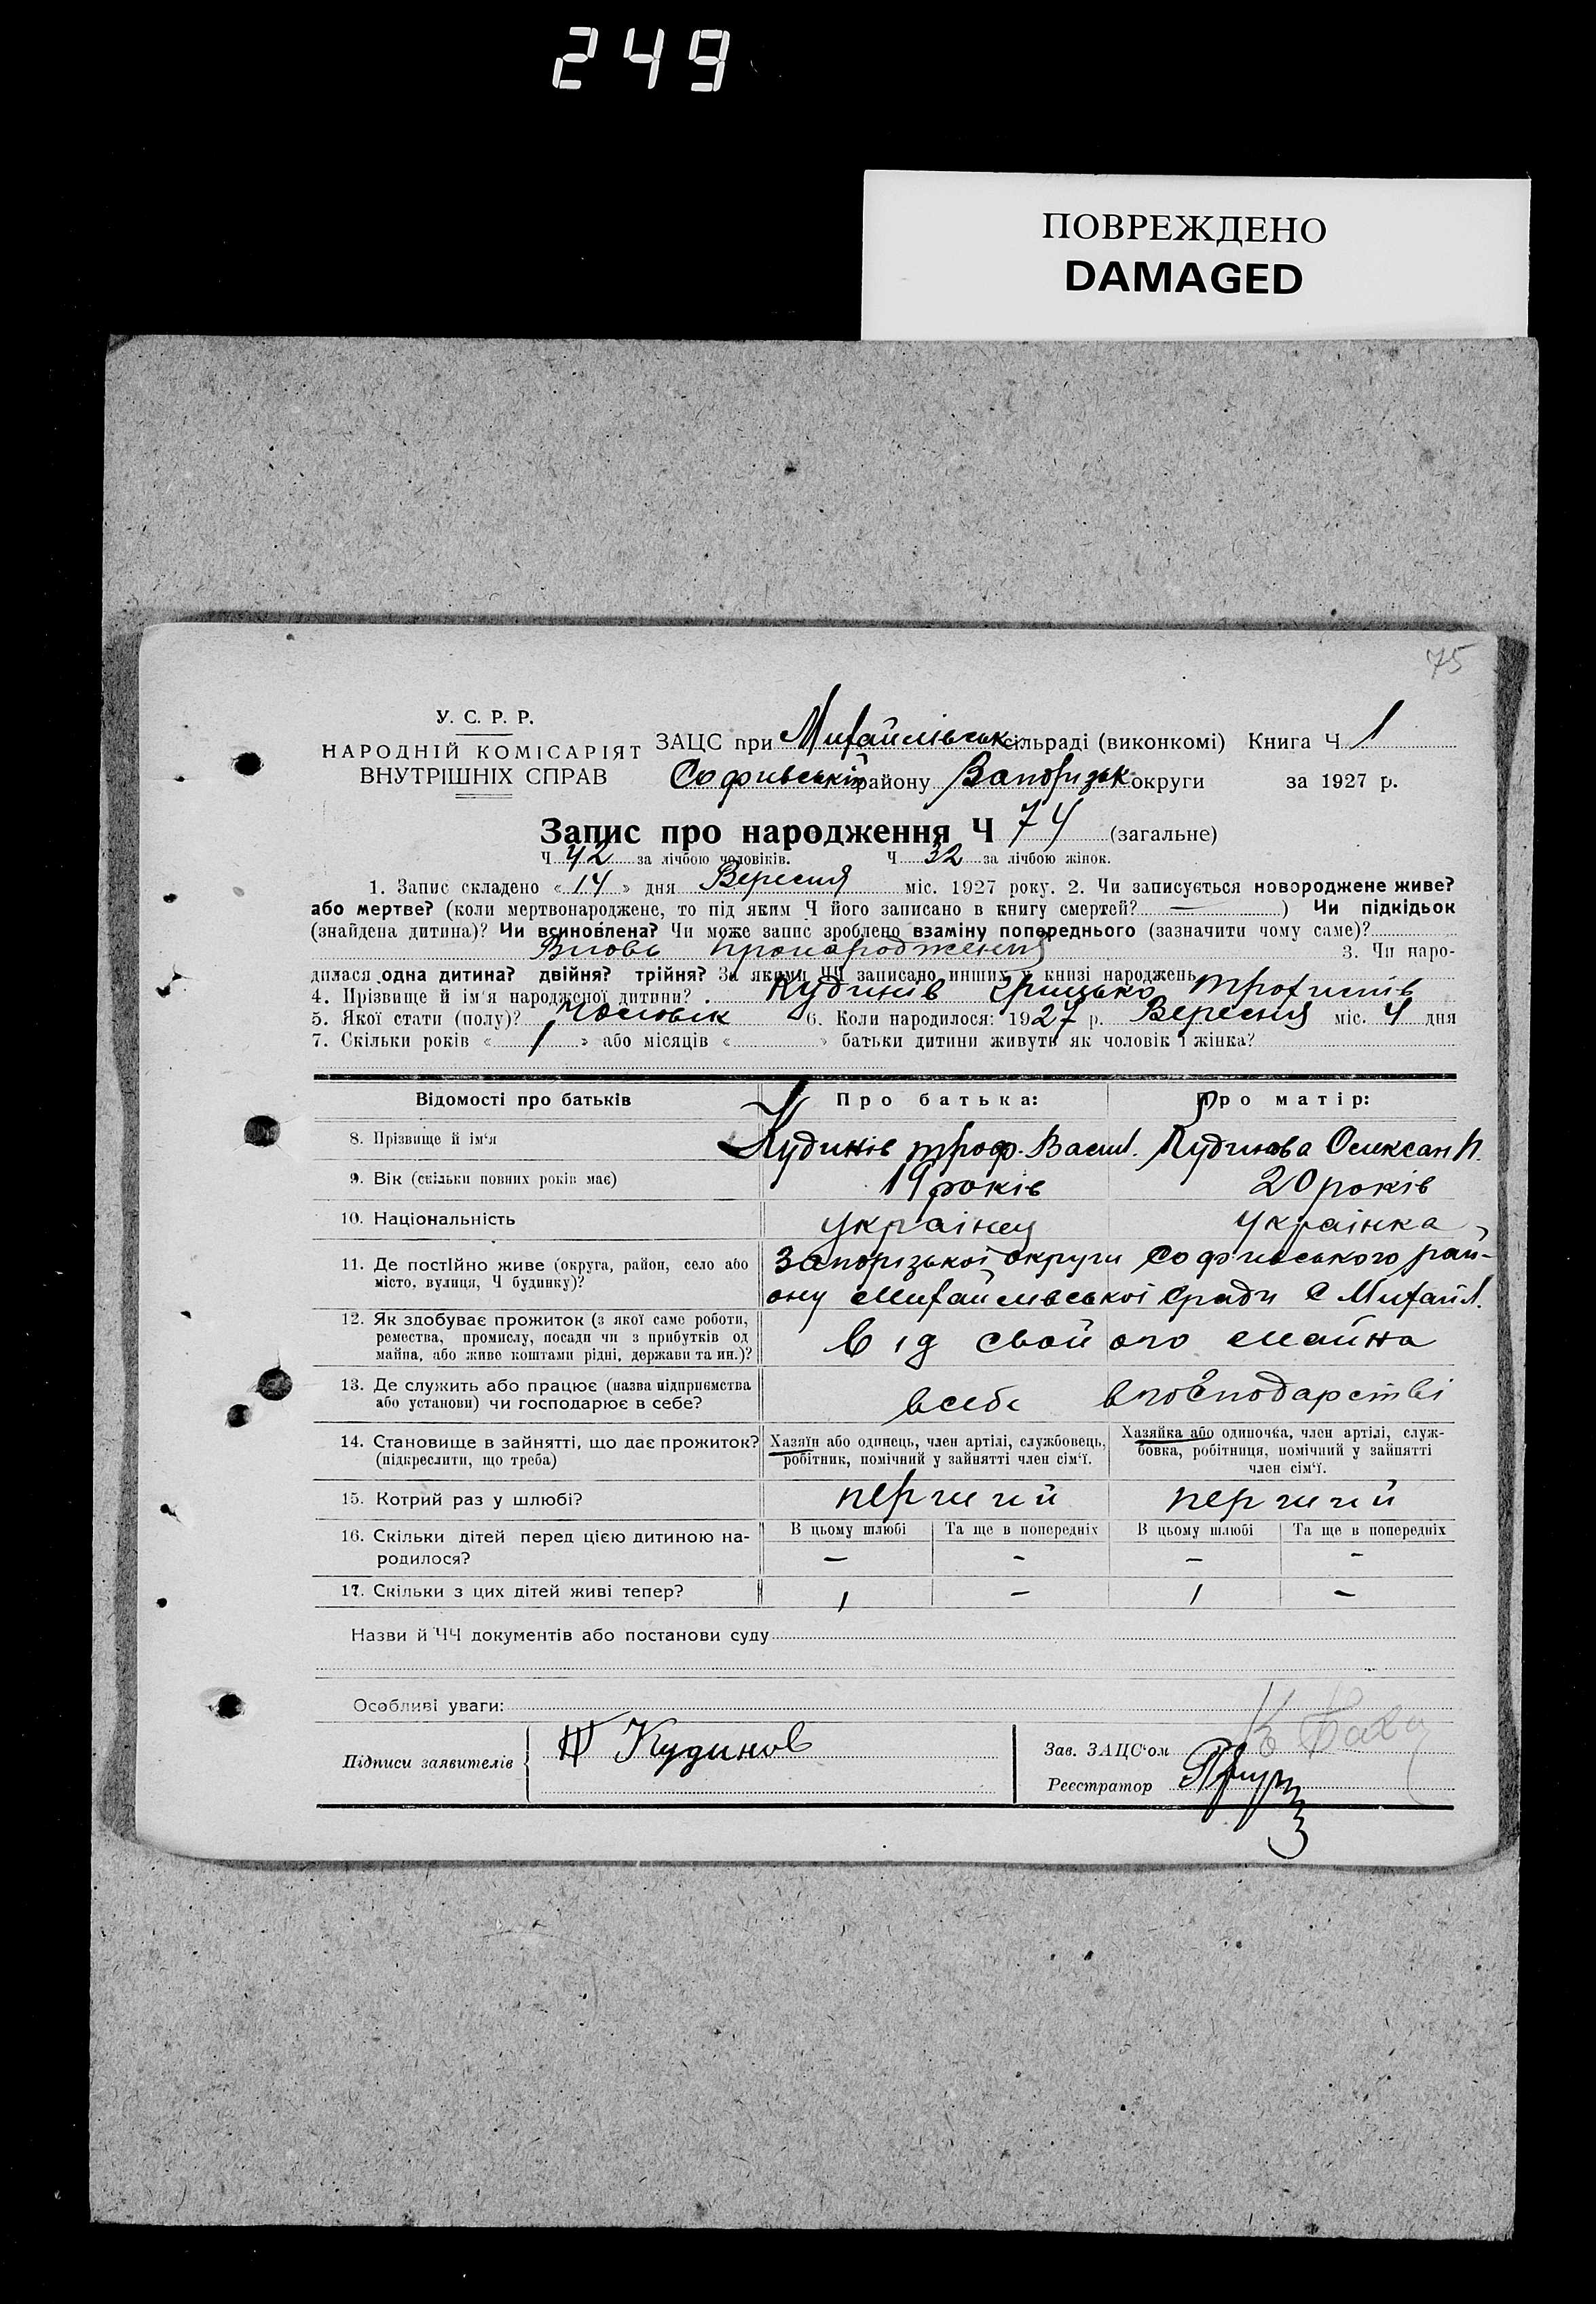 249
ПОВРЕЖДЕНО
DAMAGED
75
У. С. Р. Р.
НАРОДНІЙ КОМІСАРІЯТ
ВНУТРІШНІХ СПРАВ
ЗАЦС при Михайлівськ. сільраді (виконкомі) Книга Ч. 1
Софивській району Запорізьк округи за 1927 р.
Запис про народження Ч 74 (загальне)
Ч. 42 за лічбою чоловіків. Ч. 32 за лічбою жінок.
1. Запис складено « 14 » дня Вересня міс. 1927 року. 2. Чи записується новороджене живе?
або мертве? (коли мертвонароджене, то під яким Ч його записано в книгу смертей? — ) Чи підкідьок
(знайдена дитина)? Чи всиновлена? Чи може запис зроблено взаміну попереднього (зазначити чому саме)?
Вновь пронародження 3. Чи наро-
дилася одна дитина? двійня? трійня? За якими ЧЧ записано инших у книзі народжень
4. Прізвище й ім'я народженої дитини? Кудинів Грицько Трохимів
5. Якої стати (полу)? Чоловік 6. Коли народилося: 1927 р. Вересня міс. 4 дня
7. Скільки років « 1 » або місяців « » батьки дитини живуть як чоловік і жінка?
Відомості про батьків Про батька: Про матір:
8. Прізвище й ім'я Кудинів Троф. Васил. Кудинова Олександ П.
9. Вік (скільки повних років має) 19 років 20 років
10. Національність українец українка
11. Де постійно живе (округа, район, село або місто, вулиця, Ч будинку)? Запорізької округи Софиевського рай-
ону Михайлівської с ради с Михайл.
12. Як здобуває прожиток (з якої саме роботи, ремества, промислу, посади чи з прибутків од майна, або живе коштами рідні, держави та ин.)? Від свойого майна
13. Де служить або працює (назва підприємства або установи) чи господарює в себе? всебе вгосподарстві
14. Становище в зайнятті, що дає прожиток? (підкреслити, що треба) Хазяїн або одинець, член артілі, службовець, робітник, помічний у зайнятті член сім'ї. Хазяйка або одиночка, член артілі, служ-бовка, робітниця, помічний у зайнятті член сім'ї.
15. Котрий раз у шлюбі? перший перший
16. Скільки дітей перед цією дитиною на-родилося? В цьому шлюбі Та ще в попередніх В цьому шлюбі Та ще в попередніх
— — — —
17. Скільки з цих дітей живі тепер? 1 — 1 —
Назви й ЧЧ документів або постанови суду
Особливі уваги:
Підписи заявителів Кудинов
Зав. ЗАЦС'ом
Реєстратор